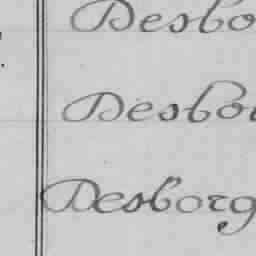 Desbo
Desbor
Desborg